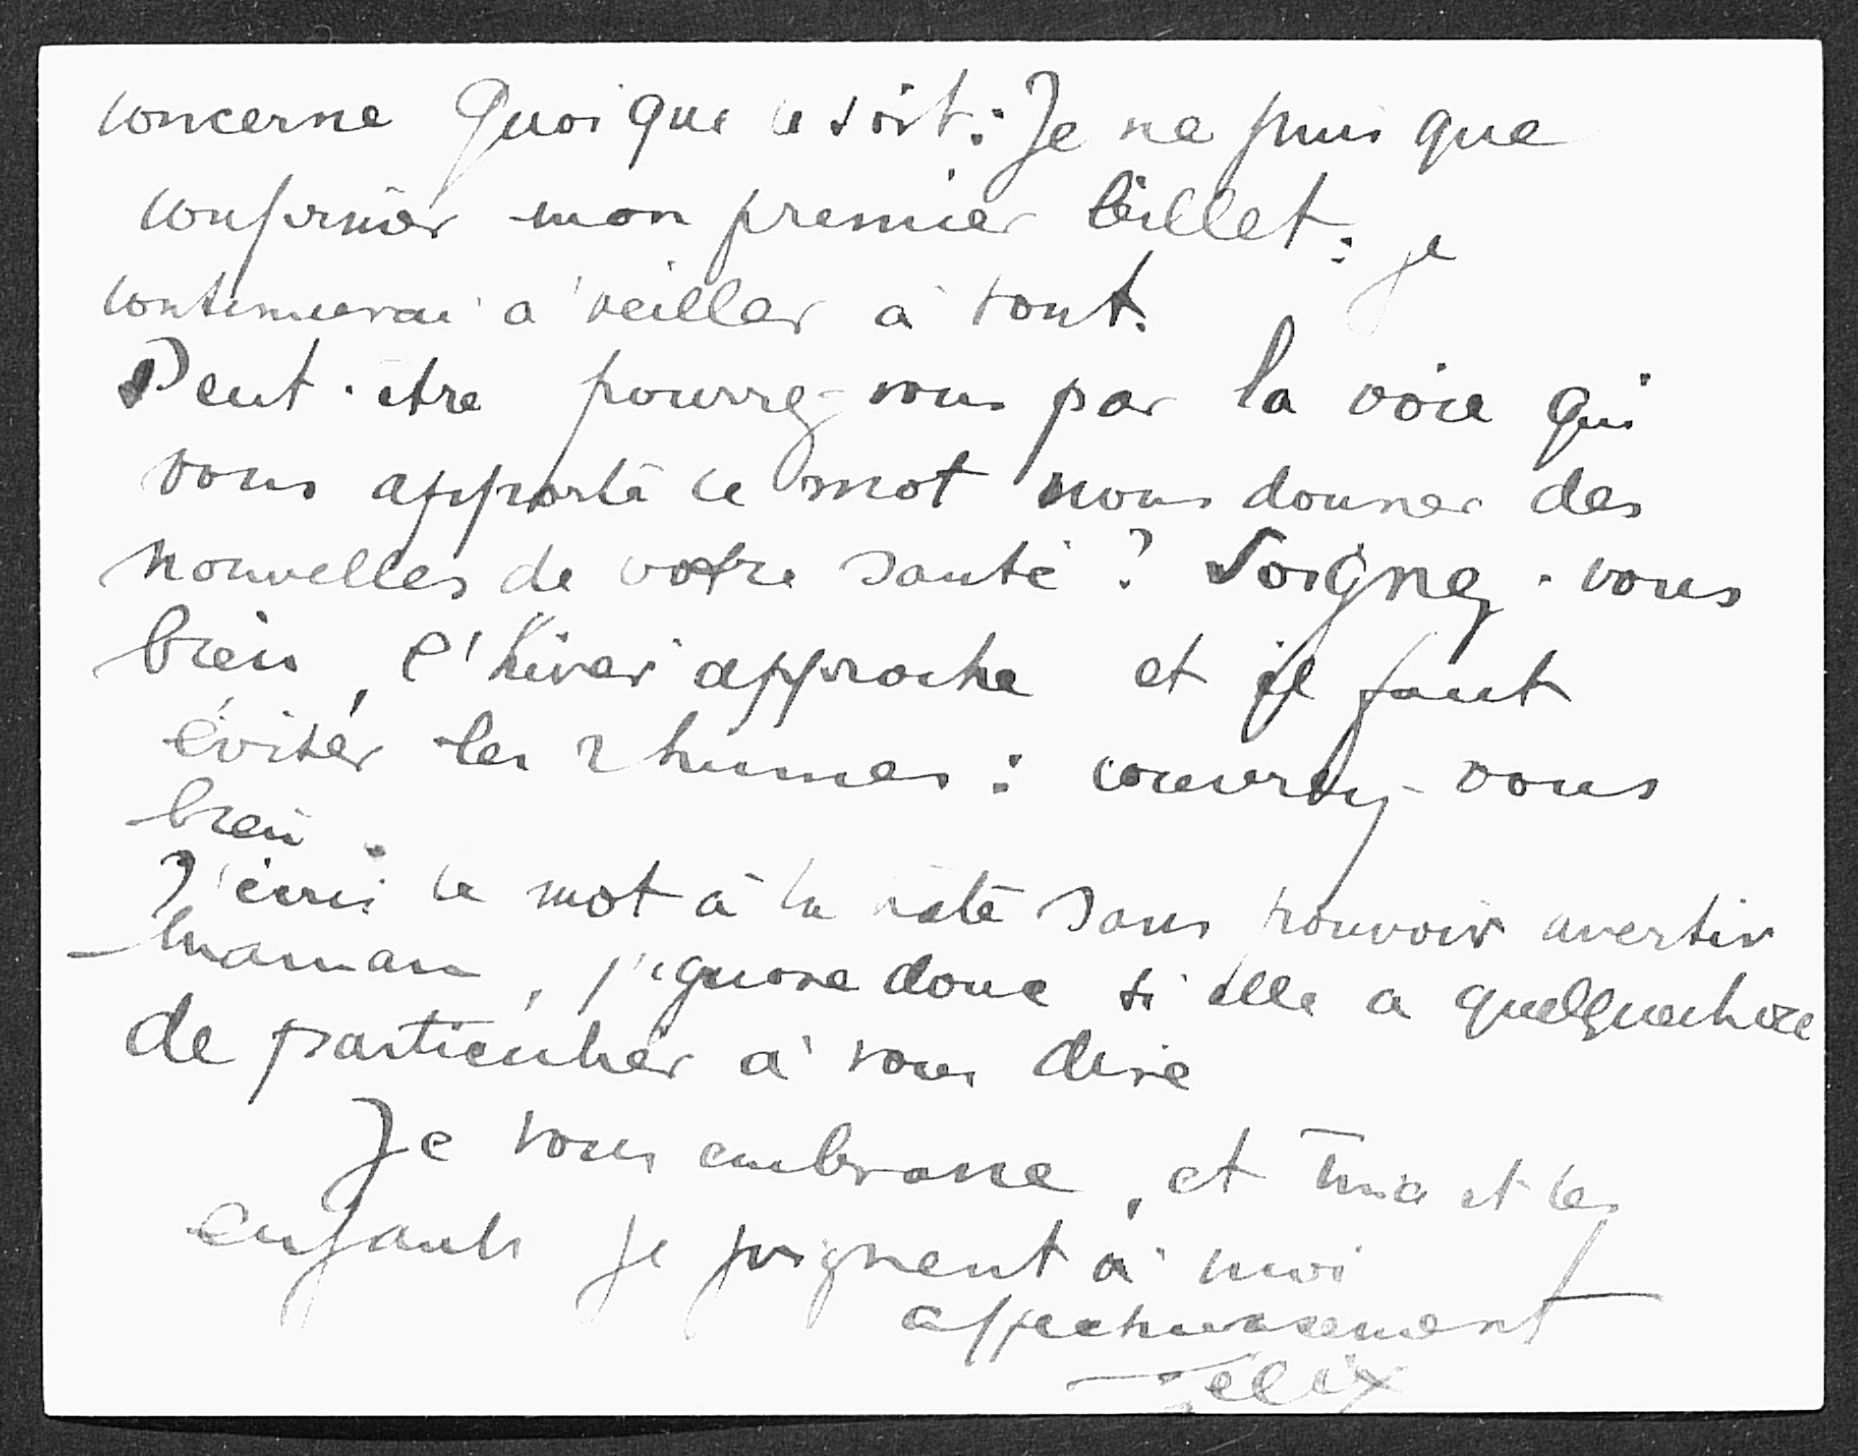 concerne quoique ce soit : Je ne puis que
confirmer mon premier billet : je
continuerai à veiller à tout.
Peut-être pourrez-vous par la voie qui
vous apporta ce mot nous donner des
nouvelles de votre santé ? Soignez-vous
bien, l'hiver approche et il faut
éviter les rhumes : couvrez-vous
bien.
J'écris ce mot à la hâte sans pouvoir avertir
maman, j'ignore donc si elle a quelquechose
de particulier à vous dire
Je vous embrasse, et et les
enfants se joignent à moi
affectueusement
Félix